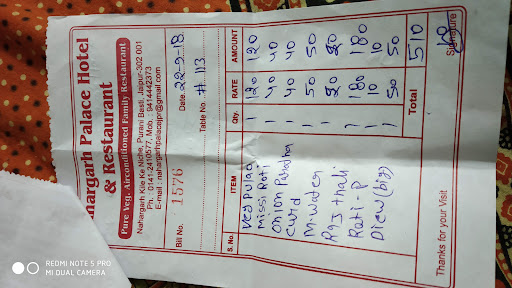 nargarh Palace Hotel
& Restaurant
Pure Veg. Airconditioned Family Restaurant
Nahargarh Kila Ke Niche, Purani Basti, Jaipur-302 001
Ph. : 0141-2410577, Mob. : 9414442373
E-mail : nahargarhpalacejpr@gmail.com
Bill No. 1576 Date. 22-9-18
Table No. # 113
S. No. ITEM Qty. RATE AMOUNT
Veg Pulao 1 120 120
Missi Roti 1 40 40
Onion Paratha 1 40 40
Curd 1 50 50
M. water 1 20 20
Raj thali 1 180 180
Roti - P 1 10 10
Diew (big) 1 50 50
Total 510
Thanks for your Visit
Signature
REDMI NOTE 5 PRO
MI DUAL CAMERA